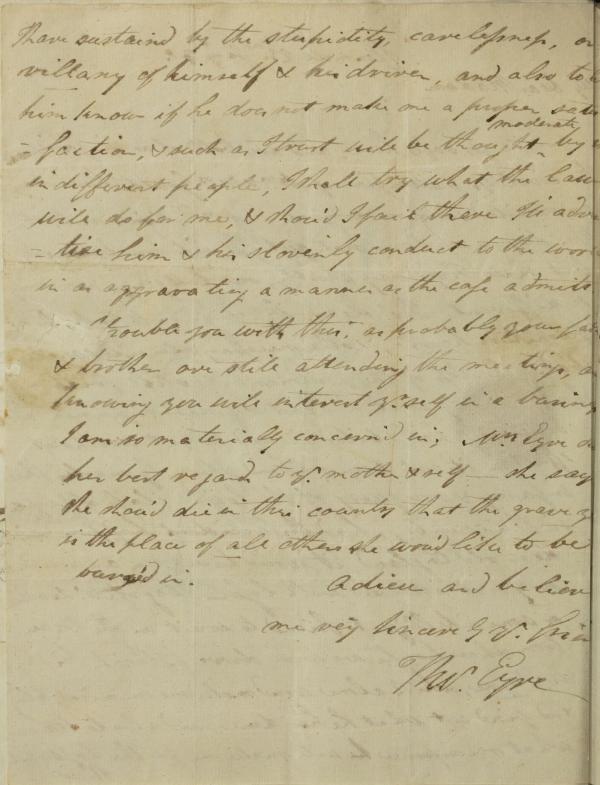 I have sustaind by the stupidity, carelessness, or
villany of himself & his driver, and also to
him know if he does not make me a proper satis
= faction, & such as I trust will be thought moderate by
indifferent people, I shall try what the law
will do for me, & shou'd I fail there I'll adver
= tise him & his slovenly conduct to the wor
in as aggravating a manner as the case admits
I trouble you with this, as probably your
& brother are still attending the meetings, a
knowing you will interest yr. self in a
I am so materially concern'd in; Mrs Eyre
her best regard to yr. mother & self — she say
she shou'd die in this country that the grave
is the place of all others she wou'd like to be
buryed in. Adieu and believe
me very sincerely yr. frien
Thos. Eyre